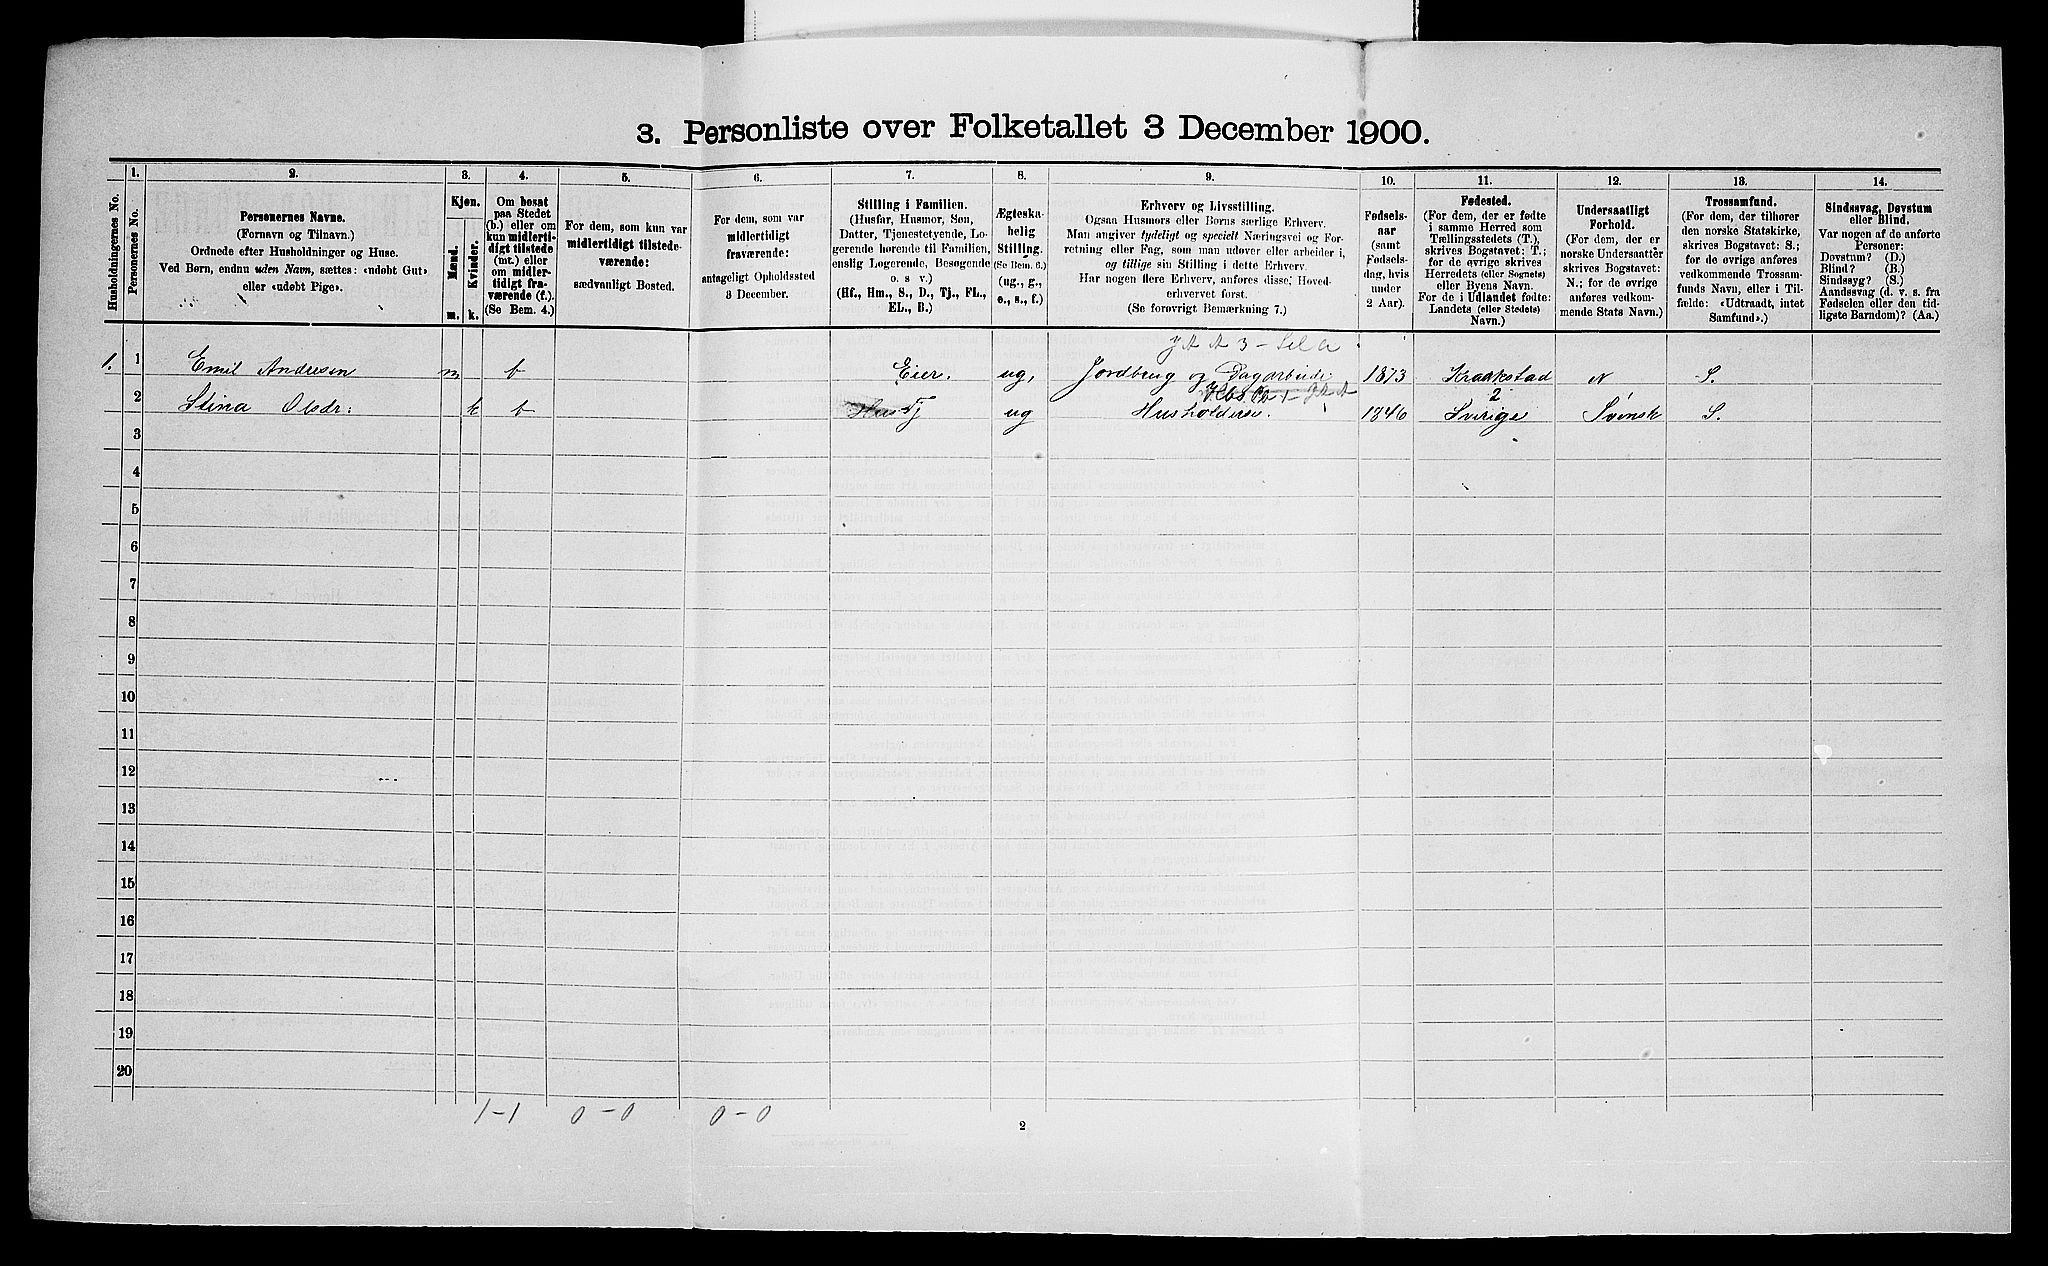 3. Personliste over Folketallet 3 December 1900.
Husholdningernes No.
1.
Personernes No.
2.
Personernes Navne.
(Fornavn og Tilnavn.)
Ordnede efter Husholdninger og Huse.
Ved Børn, endnu uden Navn, sættes: «udøbt Gut»
eller «udøbt Pige».
3.
Kjøn.
Mænd.
Kvinder.
m.
k.
4.
Om bosat
paa Stedet
(b.) eller om
kun midlerti-
digt tilstede
(mt.) eller
om midler-
tidigt fra-
værende (f.).
(Se Bem. 4.)
5.
For dem, som kun var
midlertidigt tilstede-
værende:
sædvanligt Bosted.
6.
For dem, som var
midlertidigt
fraværende:
antageligt Opholdssted
3 December.
7.
Stilling i Familien.
(Husfar, Husmor, Søn,
Datter, Tjenestetyende, Lo-
gerende hørende til Familien,
enslig Logerende, Besøgende
o. s v.)
(Hf., Hm., S., D., Tj., FL.,
EL., B.)
8.
Ægteska-
belig
Stilling.
(Se Bem. 6.)
(ug., g.,
e., s., f.)
9.
Erhverv og Livsstilling.
Ogsaa Husmors eller Børns særlige Erhverv.
Man angiver tydeligt og specielt Næringsvei og For-
retning eller Fag, som man udøver eller arbeider i,
og tillige sin Stilling i dette Erhverv.
Har nogen flere Erhverv, anføres disse, Hoved-
erhvervet først.
(Se forøvrigt Bemærkning 7.)
10.
Fødsels-
aar
(samt
Fødsels-
dag, hvis
under
2 Aar).
11.
Fødested.
(For dem, der er fødte
i samme Herred som
Tællingsstedets (T.),
skrives Bogstavet: T.;
for de øvrige skrives
Herredets (eller Sognets)
eller Byens Navn.
For de i Udlandet fødte:
Landets (eller Stedets)
Navn.)
12.
Undersaatligt
Forhold.
(For dem, der er
norske Undersaatter
skrives Bogstavet:
N.; for de øvrige
anføres vedkom-
mende Stats Navn.)
13.
Trossamfund.
(For dem, der tilhører
den norske Statskirke,
skrives Bogstavet: S.;
for de øvrige anføres
vedkommende Trossam-
funds Navn, eller i Til-
fælde: «Udtraadt, intet
Samfund».)
14.
Sindssvag, Døvstum
eller Blind.
Var nogen af de anførte
Personer:
Døvstum? (D.)
Blind? (B.)
Sindssyg? (S.)
Aandssvag (d. v. s. fra
Fødselen eller den tid-
ligste Barndom)? (Aa.)
1. 1 Emil Andresen m b Eier. ug, Jordbrug og Dagarbeide 1873 Kraakstad N S.
2 Stina Olsdr: k b Tj ug Husholderske. 1846 Sverige Svensk S.
2
3
4
5
6
7
8
9
10
11
12
13
14
15
16
17
18
19
20
1-1 0-0 0-0
2